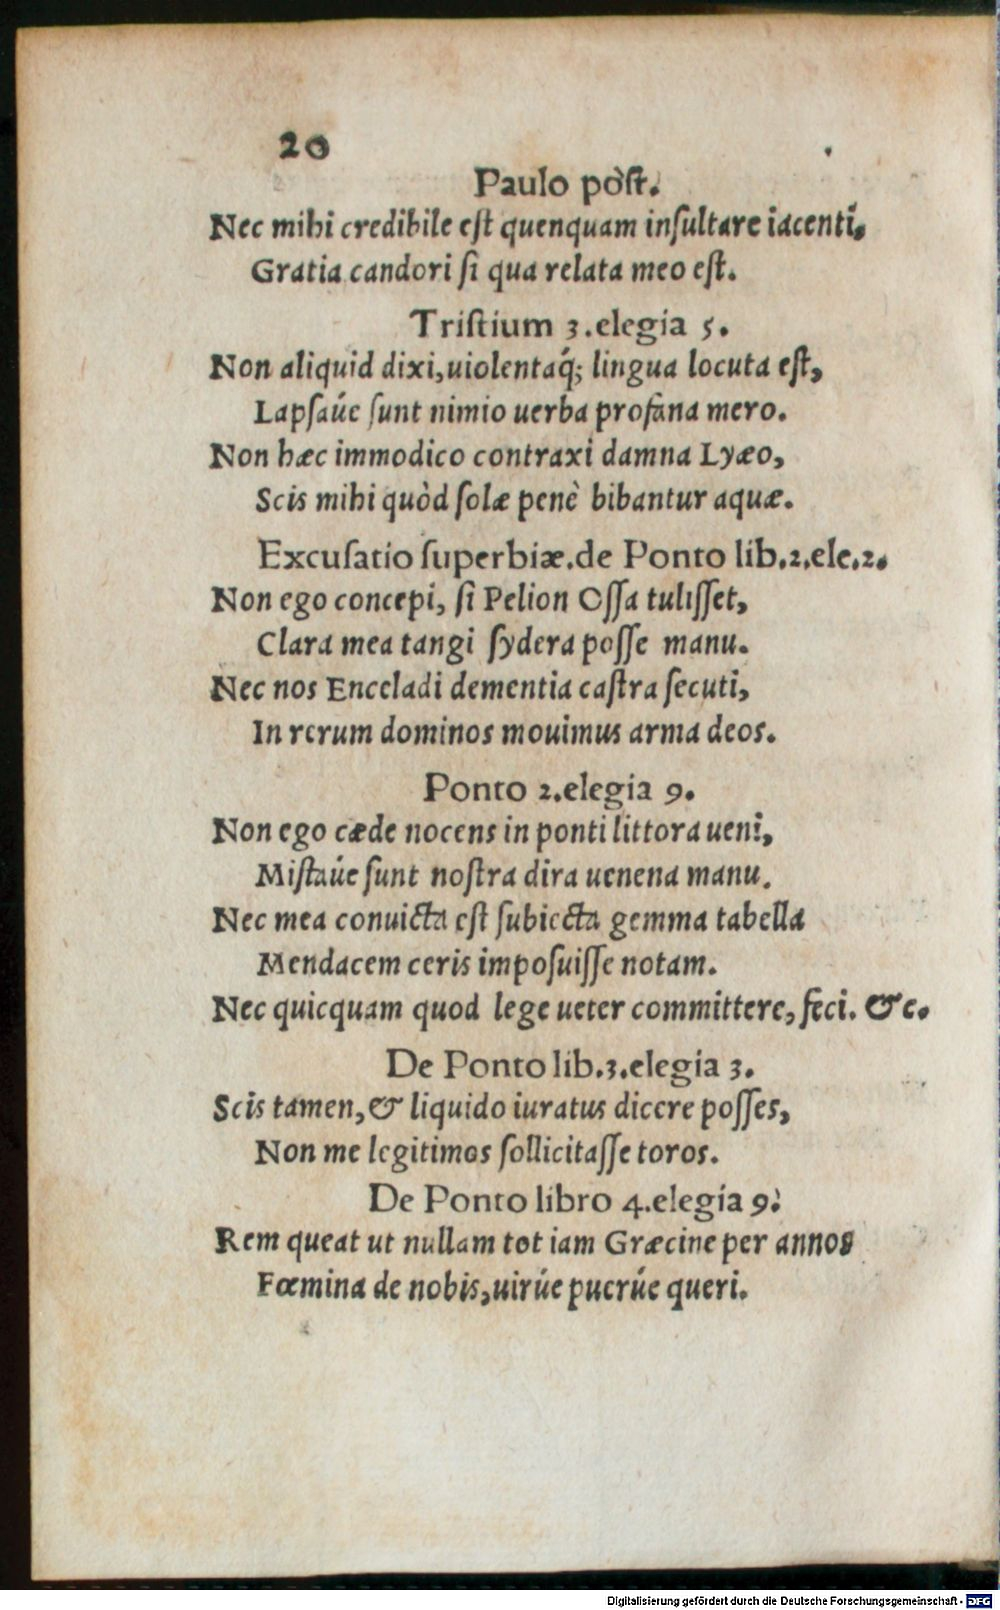 20
Paulo pòst.
Nec mihi credibile est quenquam insultare iacenti,
Gratia candori si qua relata meo est.
Tristium 3. elegia 5.
Non aliquid dixi, uiolentaq́; lingua locuta est,
Lapsaúe sunt nimio uerba profana mero.
Non hæc immodico contraxi damna Lyæo,
Scis mihi quòd solæ penè bibantur aquæ.
Excusatio superbiæ. de Ponto lib. 2. ele. 2.
Non ego concepi, si Pelion Ossa tulisset,
Clara mea tangi sydera posse manu.
Nec nos Enceladi dementia castra secuti,
In rerum dominos mouimus arma deos.
Ponto 2. elegia 9.
Non ego cæde nocens in ponti littora ueni,
Mistaúe sunt nostra dira uenena manu.
Nec mea conuicta est subiecta gemma tabella
Mendacem ceris imposuisse notam.
Nec quicquam quod lege ueter committere, feci. &c.
De Ponto lib. 3. elegia 3.
Scis tamen, & liquido iuratus dicere posses,
Non me legitimos sollicitasse toros.
De Ponto libro 4. elegia 9.
Rem queat ut nullam tot iam Græcine per annos
Fœmina de nobis, uirúe puerúe queri.
Digitalisierung gefördert durch die Deutsche Forschungsgemeinschaft - DFG